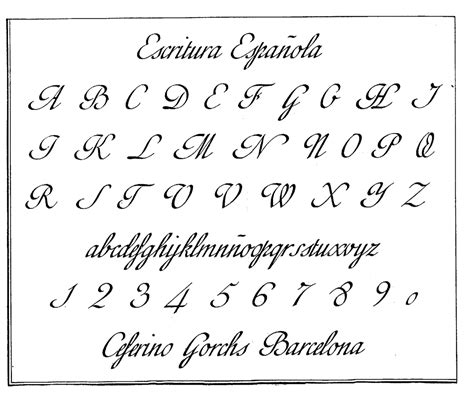 Escritura Española
A B C D E F G G H I
J K L M N N O P Q
R S T U V W X Y Z
abcdefghijklmnñopqrsstuxvyz
1 2 3 4 5 6 7 8 9 0
Ceferino Gorchs Barcelona